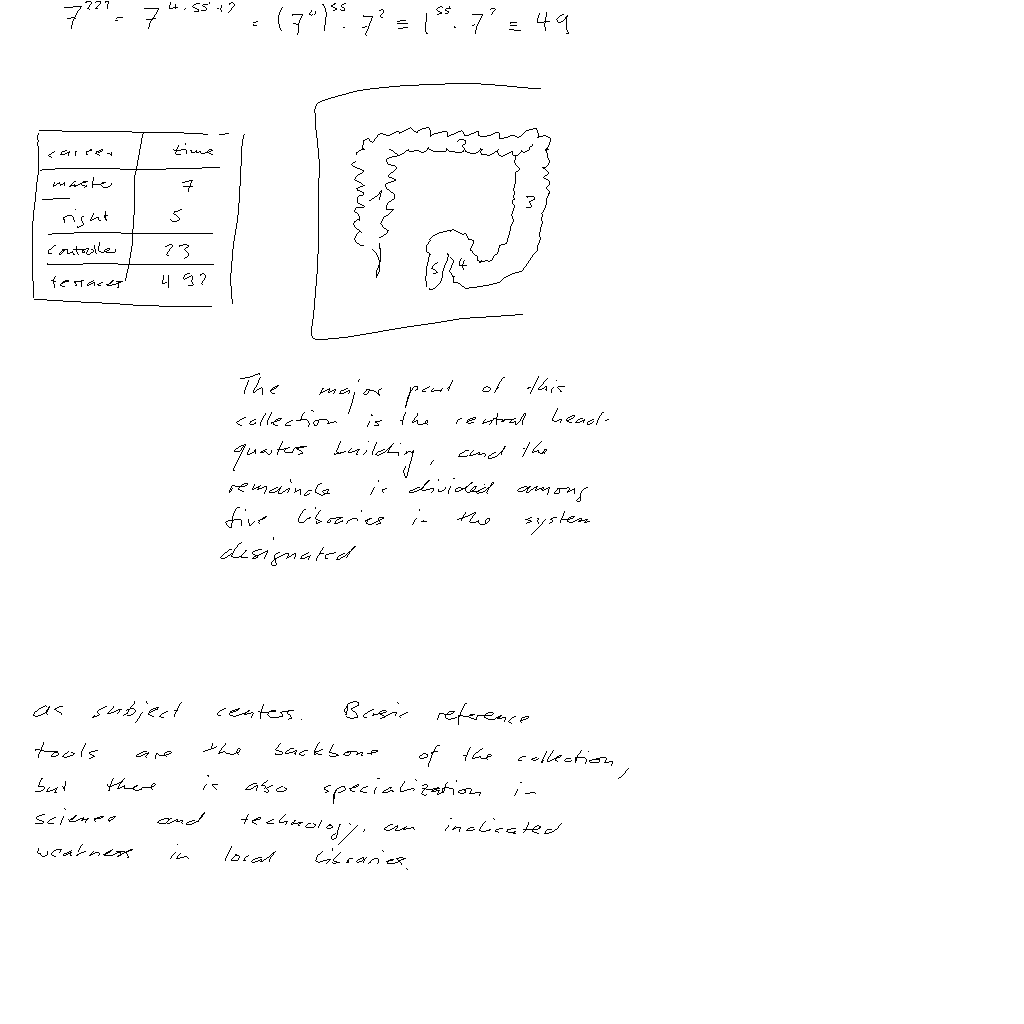 7²²² = 7⁴·⁵⁵⁺² = (7⁴)⁵⁵ · 7² ≡ 1⁵⁵ · 7² ≡ 49
career time
master 7
right 5
controller 23
terraces 492
1 2 3 4 5
The major part of this
collection is the central head-
quarters building, and the
remainder is divided among
five libraries in the system
designated
as subject centers. Basic reference
tools are the backbone of the collection,
but there is also specialization in
science and technology, an indicated
weakness in local libraries.